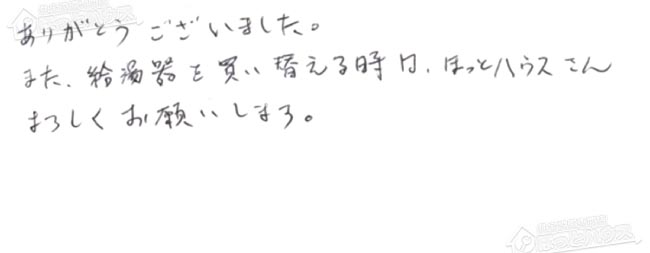 ありがとうございました。
また、給湯器を買い替える時は、ほっとハウスさん
よろしくお願いします。
ほっとハウス